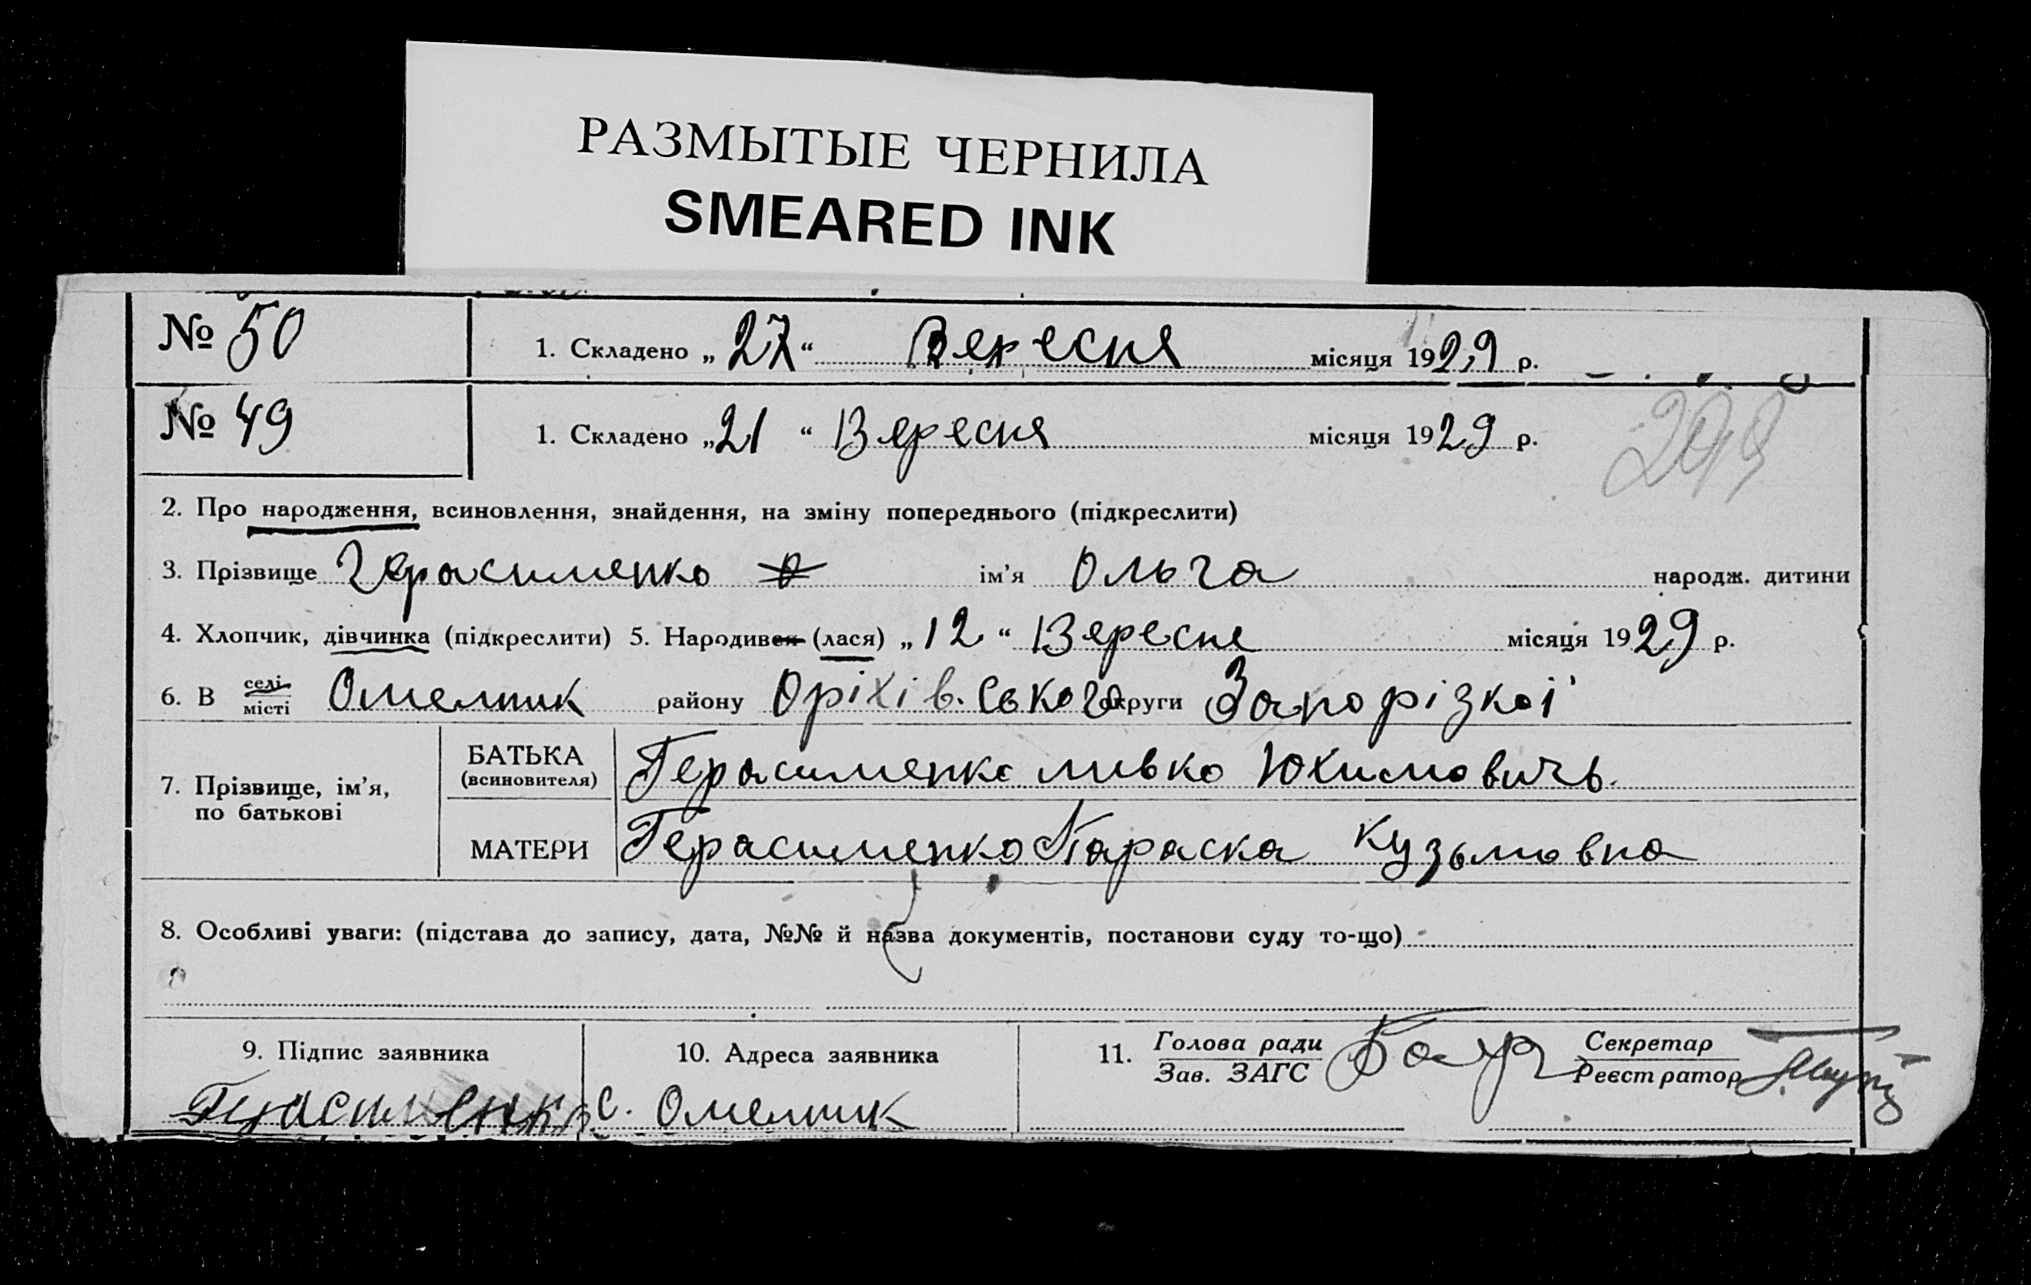 РАЗМЫТЫЕ ЧЕРНИЛА
SMEARED INK
№ 50 1. Складено „27“ Вересня місяця 1929 р.
№ 49 1. Складено „21“ Вересня місяця 1929 р.
2. Про народження, всиновлення, знайдення, на зміну попереднього (підкреслити)
3. Прізвище Герасименко ім'я Ольга народж. дитини
4. Хлопчик, дівчинка (підкреслити) 5. Народився (лася) „12“ Вересня місяця 1929 р.
6. В селі місті Омелник району Оріхів.ського округи Запорізкої
7. Прізвище, ім'я, по батькові
БАТЬКА (всиновителя) Герасименко Ливко Юхимовичь.
МАТЕРИ Герасименко Параска Кузьмовна
8. Особливі уваги: (підстава до запису, дата, №№ й назва документів, постанови суду то-що)
9. Підпис заявника 10. Адреса заявника 11. Голова ради Зав. ЗАГС Секретар Реєстратор
Герасименко с. Омелник